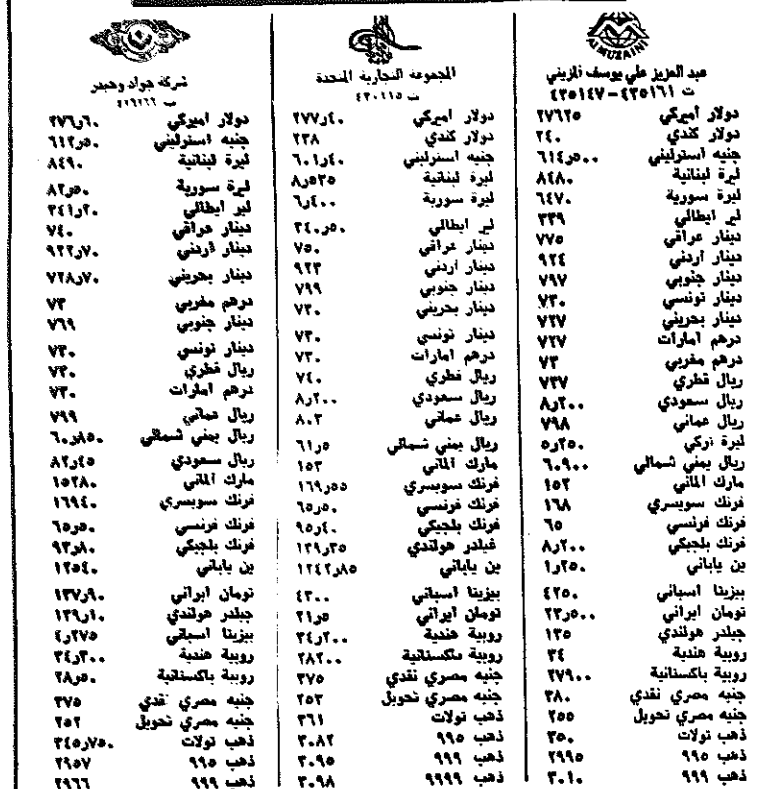 ALMUZAINI
عبد العزيز علي يوسف المزيني
ت ٤٣٥١٦١ – ٤٣٥١٤٧
دولار اميركي ٢٧٦٢٥
دولار كندي ٢٤٠
جنيه استرليني ٦١٤٫٥٠٠
ليرة لبنانية ٨٤٨٠
ليرة سورية ٦٤٧٠
لير ايطالي ٣٣٩
دينار عراقي ٧٧٥
دينار اردني ٩٢٤
دينار جنوبي ٧٩٧
دينار تونسي ٧٣٠
دينار بحريني ٧٢٧
درهم امارات ٧٢٧
درهم مغربي ٧٣
ريال قطري ٧٣٧
ريال سعودي ٨٫٢٠٠
ريال عماني ٧٩٨
ليرة تركي ٥٫٢٥٠
ريال يمني شمالي ٦٠٩٠٠
مارك الماني ١٥٢
فرنك سويسري ١٦٨
فرنك فرنسي ٦٥
فرنك بلجيكي ٨٫٢٠٠
ين ياباني ١٫٢٥٠
بيزيتا اسباني ٤٢٥٠
تومان ايراني ٢٣٫٥٠٠
جيلدر هولندي ١٣٥
روبية هندية ٣٤
روبية باكستانية ٢٧٩٠٠
جنيه مصري نقدي ٣٨٠
جنيه مصري تحويل ٢٥٥
ذهب تولات ٣٥٠
ذهب ٩٩٥ ٢٩٩٥
ذهب ٩٩٩ ٣٠١٠
المجموعة التجارية المتحدة
ت ٤٣٠١١٥
دولار اميركي ٢٧٧٫٤٠
دولار كندي ٢٣٨
جنيه استرليني ٦٠١٫٤٠
ليرة لبنانية ٨٫٥٣٥
ليرة سورية ٦٫٤٠٠
لير ايطالي ٣٤٠٫٥٠
دينار عراقي ٧٥٠
دينار اردني ٩٢٣
دينار جنوبي ٧٩٩
دينار بحريني ٧٣٠
دينار تونسي ٧٣٠
درهم امارات ٧٣٠
ريال قطري ٧٤٠
ريال سعودي ٨٫٢٠٠
ريال عماني ٨٠٣
ريال يمني شمالي ٦١٫٥
مارك الماني ١٥٣
فرنك سويسري ١٦٩٫٥٥
فرنك فرنسي ٦٥٫٥٠
فرنك بلجيكي ٩٥٫٤٠
غيلدر هولندي ١٣٩٫٣٥
ين ياباني ١٢٤٢٫٨٥
بيزيتا اسباني ٤٣٠٠
تومان ايراني ٢١٫٥
روبية هندية ٣٤٫٢٠٠
روبية باكستانية ٢٨٢٠٠
جنيه مصري نقدي ٣٧٥
جنيه مصري تحويل ٢٥٣
ذهب تولات ٣٦١
ذهب ٩٩٥ ٣٠٨٢
ذهب ٩٩٩ ٣٠٩٥
ذهب ٩٩٩٩ ٣٠٩٨
شركة جواد وحيدر
دولار اميركي ٢٧٦٫٦٠
جنيه استرليني ٦١٢٫٥٠
ليرة لبنانية ٨٤٩٠
ليرة سورية ٨٢٫٥٠
لير ايطالي ٣٤١٫٢٠
دينار عراقي ٧٤٠
دينار اردني ٩٢٢٫٧٠
دينار بحريني ٧٢٨٫٧٠
درهم مغربي ٧٣
دينار جنوبي ٧٦٩
دينار تونسي ٧٣٠
ريال قطري ٧٣٠
درهم امارات ٧٣٠
ريال عماني ٧٩٩
ريال يمني شمالي ٦٠٫٨٥٠
ريال سعودي ٨٢٫٤٥
مارك الماني ١٥٢٨٠
فرنك سويسري ١٦٩٤٠
فرنك فرنسي ٦٥٫٥٠
فرنك بلجيكي ٩٣٫٨٠
ين ياباني ١٢٥٤٠
تومان ايراني ١٣٧٫٩٠
جيلدر هولندي ١٣٩٫١٠
بيزيتا اسباني ٤٫٢٧٥
روبية هندية ٣٤٫٣٠٠
روبية باكستانية ٢٨٫٥٠
جنيه مصري نقدي ٣٧٥
جنيه مصري تحويل ٢٥٢
ذهب تولات ٣٤٥٫٧٥٠
ذهب ٩٩٥ ٢٩٥٧
ذهب ٩٩٩ ٢٩٦٦